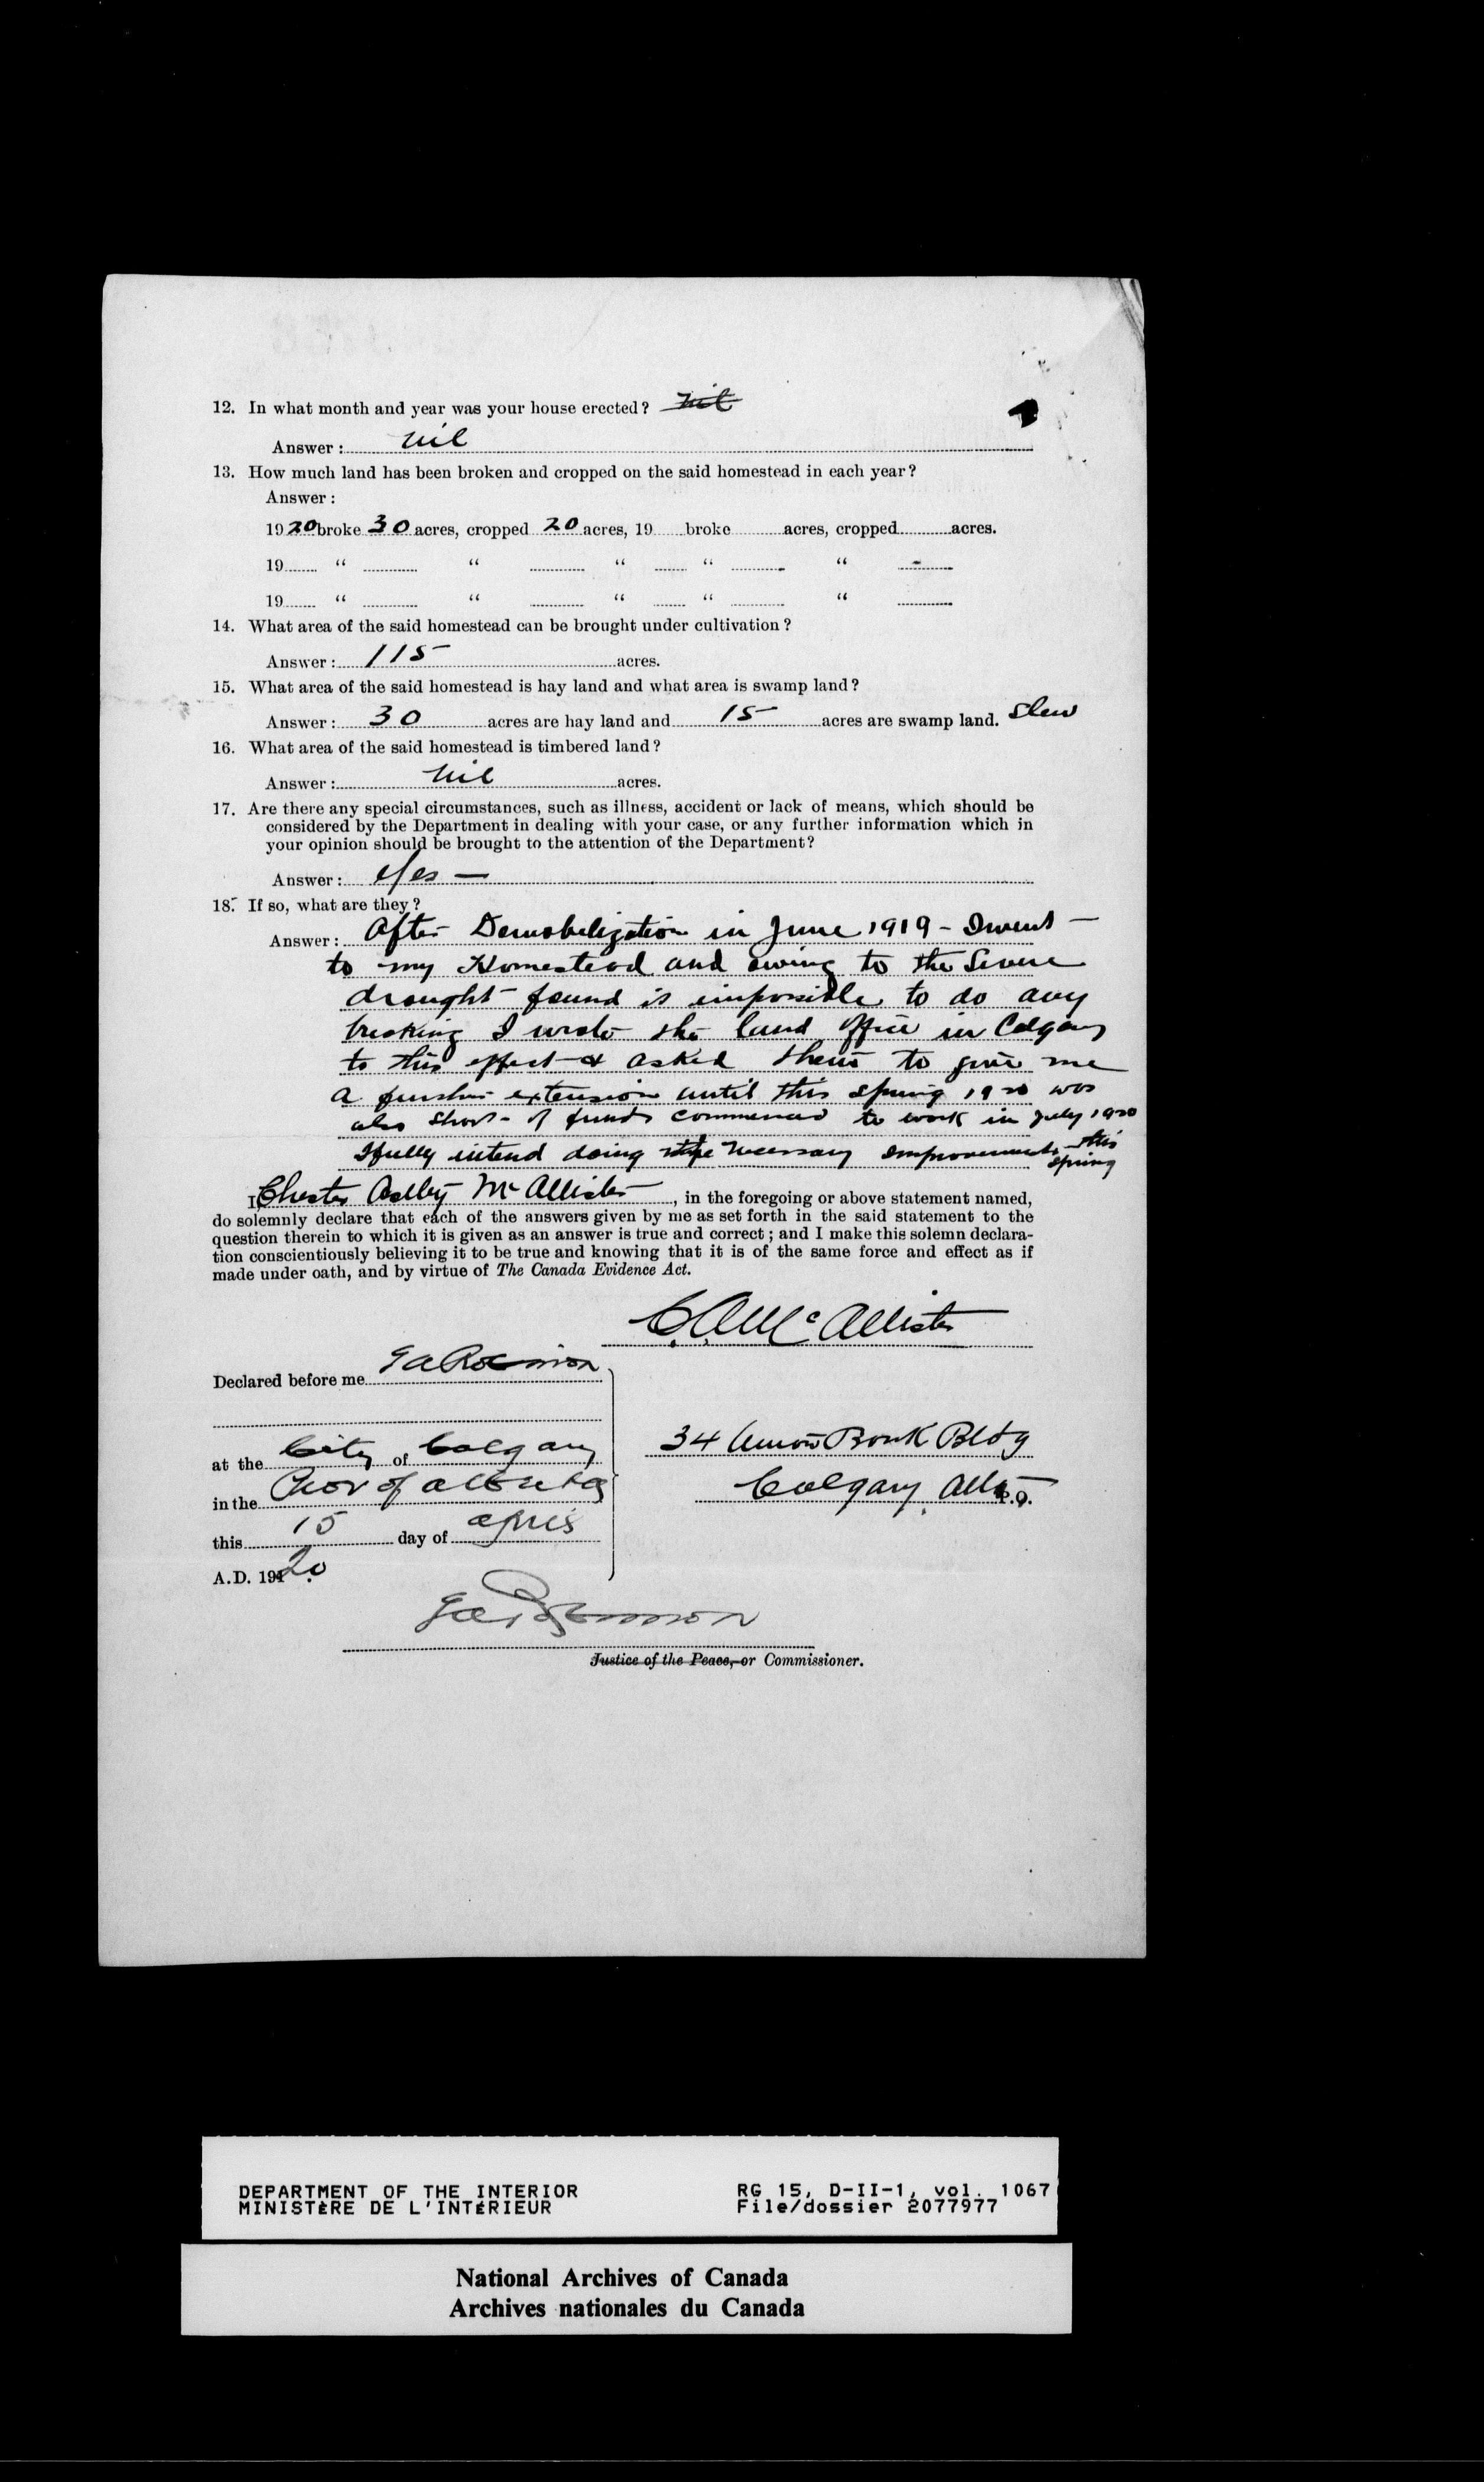 12. In what month and year was your house erected? Nil
Answer: Nil
13. How much land has been broken and cropped on the said homestead in each year?
Answer:
1920 broke 30 acres, cropped 20 acres, 19 broke acres, cropped acres.
19 “ “ “ “ “
19 “ “ “ “ “
14. What area of the said homestead can be brought under cultivation?
Answer: 115 acres.
15. What area of the said homestead is hay land and what area is swamp land?
Answer: 30 acres are hay land and 15 acres are swamp land. Slew
16. What area of the said homestead is timbered land?
Answer: Nil acres.
17. Are there any special circumstances, such as illness, accident or lack of means, which should be
considered by the Department in dealing with your case, or any further information which in
your opinion should be brought to the attention of the Department?
Answer: Yes —
18. If so, what are they?
Answer: After Demobilization in June 1919 - I went -
to my Homestead and owing to the Severe
drought found it impossible to do any
breaking I wrote the land office in Calgary
to this effect & asked them to give me
a further extension until this spring 1920 was
also short of funds commenced to work in July 1920
I fully intend doing the necessary improvements this
spring
I Chester McAllister, in the foregoing or above statement named,
do solemnly declare that each of the answers given by me as set forth in the said statement to the
question therein to which it is given as an answer is true and correct; and I make this solemn declara-
tion conscientiously believing it to be true and knowing that it is of the same force and effect as if
made under oath, and by virtue of The Canada Evidence Act.
C. A. McAllister
Declared before me G A Robinson
at the City of Calgary
in the Prov of Alberta
this 15 day of April
A.D. 1920
34 Union Bank Bldg
Calgary Alta P.O.
G A Robinson
Justice of the Peace, or Commissioner.
DEPARTMENT OF THE INTERIOR
MINISTÈRE DE L'INTÉRIEUR
RG 15, D-II-1, vol. 1067
File/dossier 2077977
National Archives of Canada
Archives nationales du Canada